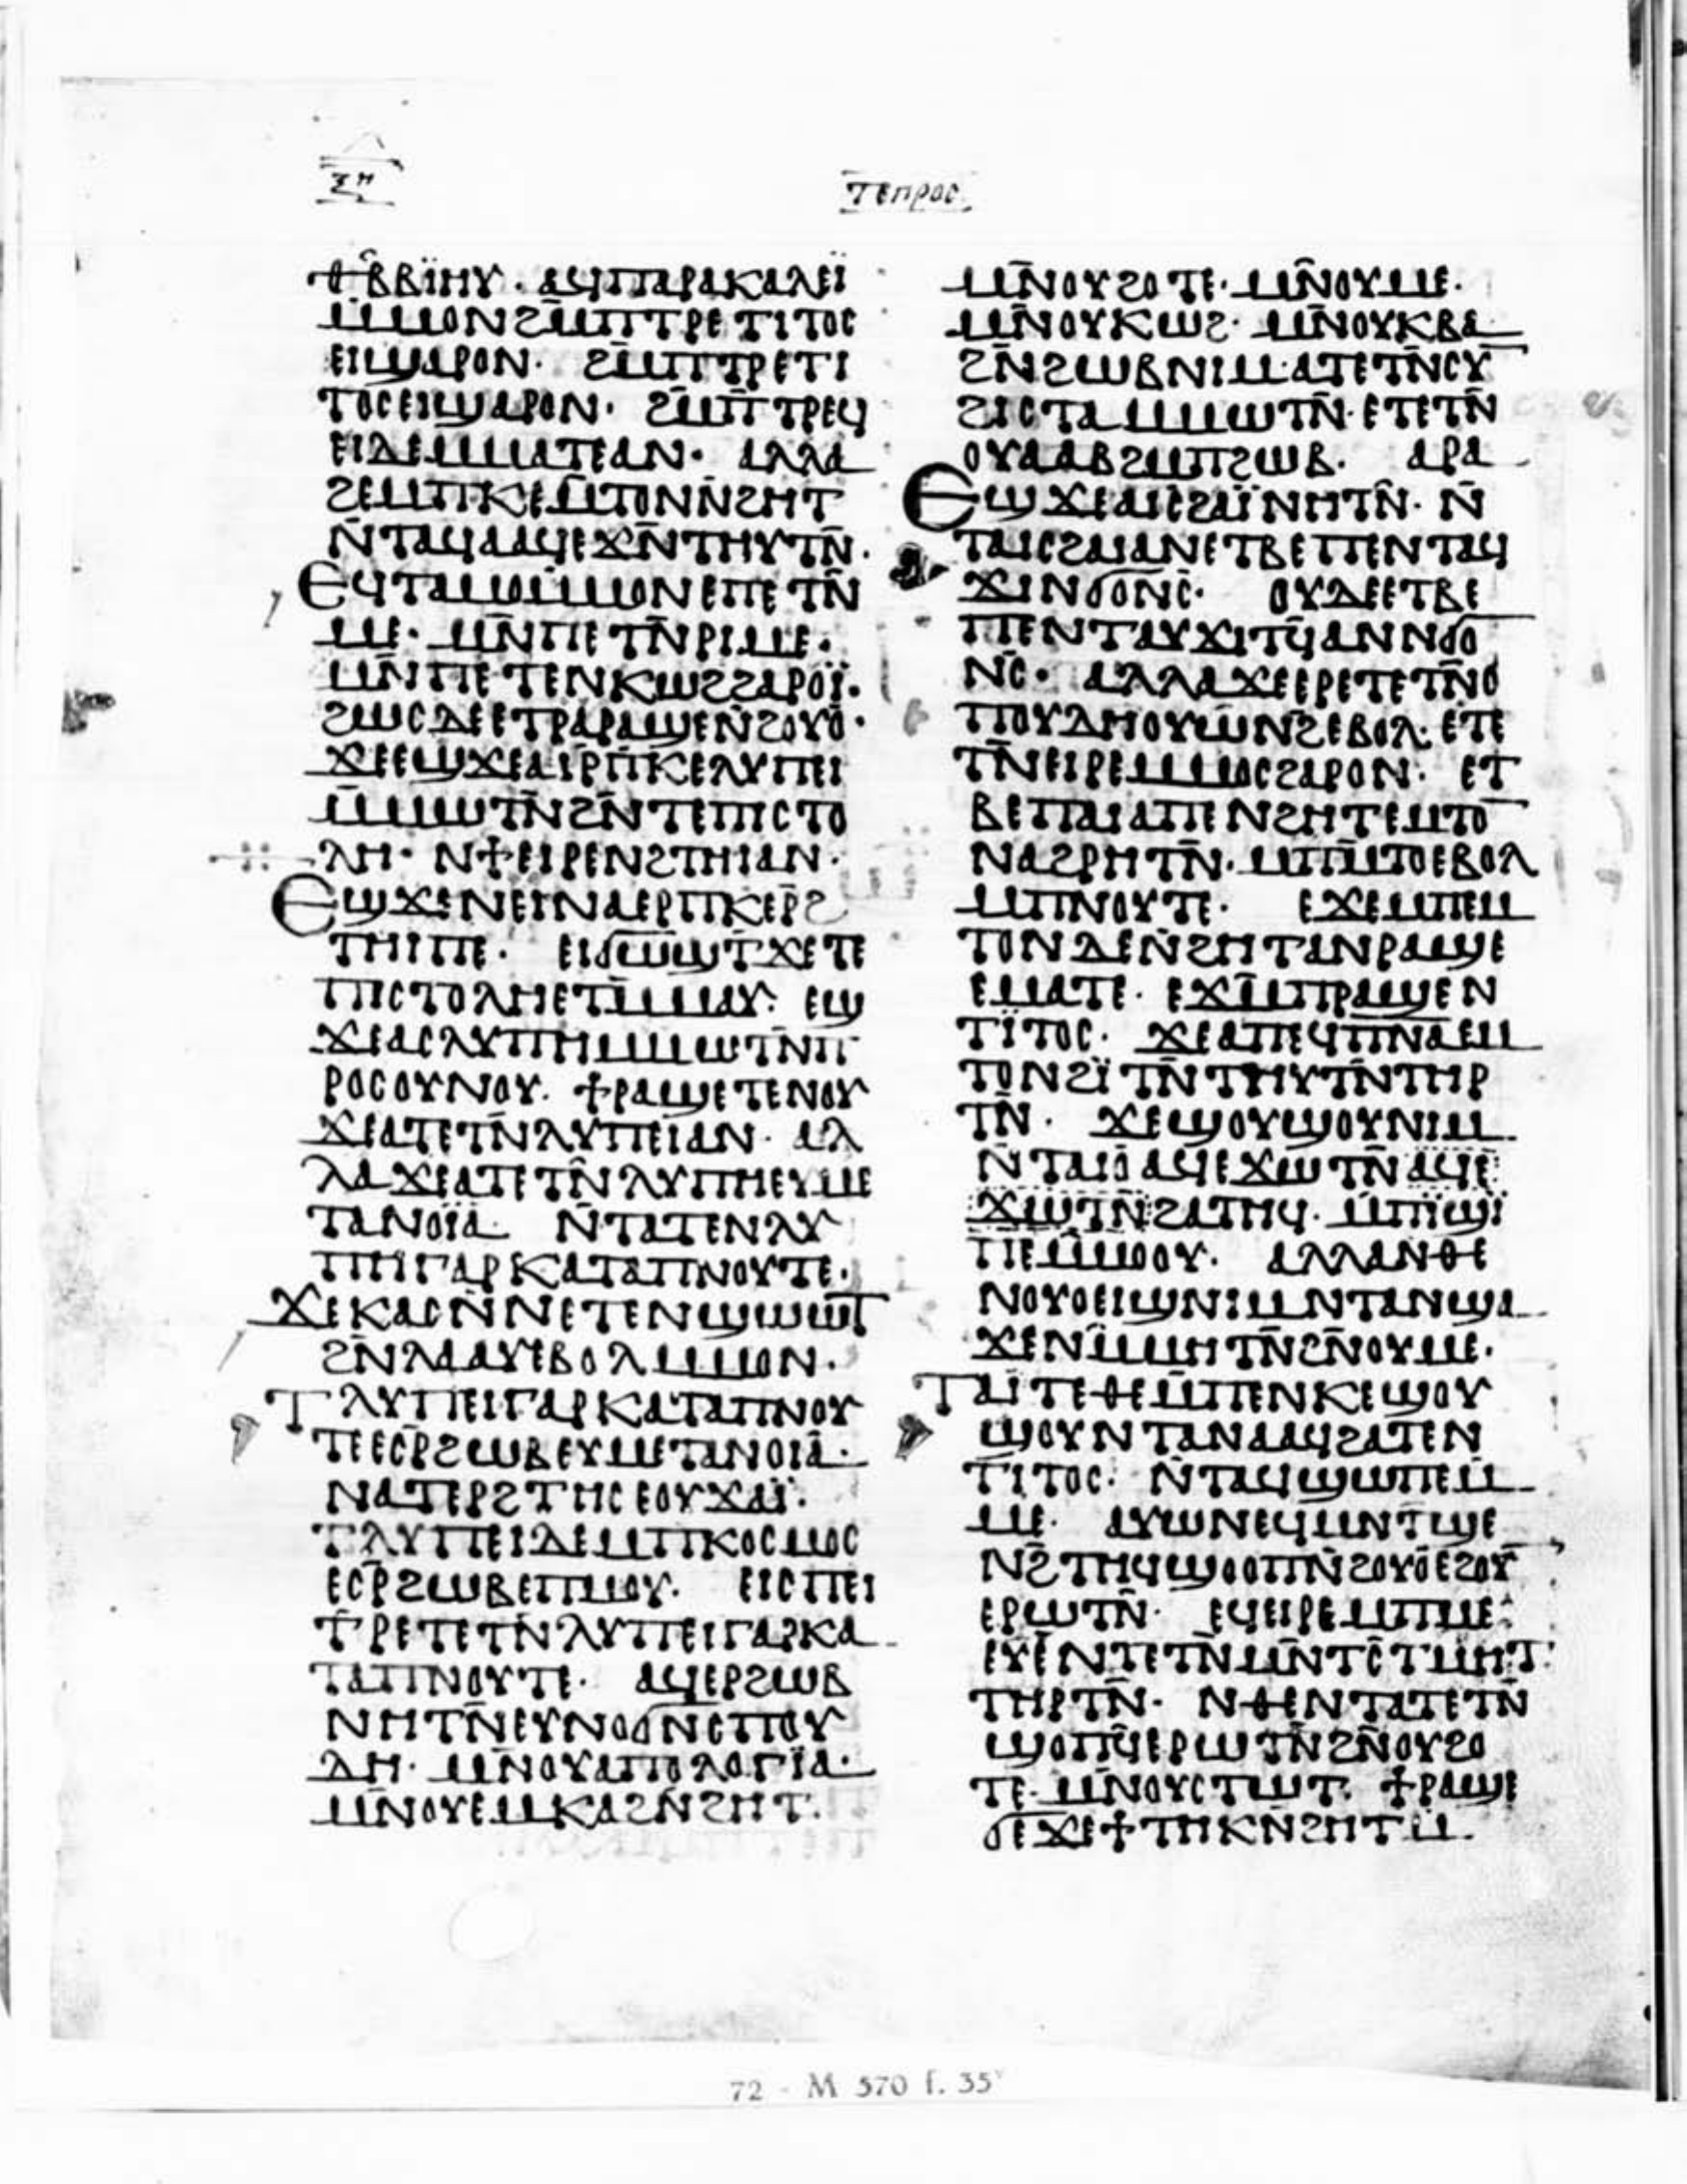 ⲝⲏ
ⲧⲉⲡⲣⲟⲥ
ⲑⲃⲃⲓ̈ⲏⲩ · ⲁϥⲡⲁⲣⲁⲕⲁⲗⲉⲓ̈
ⲙⲙⲟⲛϩⲙ̄ⲡⲧⲣⲉⲧⲓⲧⲟⲥ
ⲉⲓϣⲁⲣⲟⲛ · ϩⲙ̄ⲡⲧⲣⲉⲧⲓ
ⲧⲟⲥⲉⲓϣⲁⲣⲟⲛ · ϩⲙ̄ⲡⲧⲣⲉϥ
ⲉⲓⲇⲉⲙⲙⲁⲧⲉⲁⲛ · ⲁⲗⲗⲁ
ϩⲉⲙⲡⲕⲉⲙ̄ⲧⲟⲛⲛ̄ϩⲏⲧ
ⲛ̄ⲧⲁϥⲁⲁϥⲉϫⲛ̄ⲧⲏⲩⲧⲛ̄ ·
ⲉϥⲧⲁⲙⲟⲙ̄ⲙⲟⲛⲉⲡⲉⲧⲛ̄
ⲙⲉ · ⲙⲛ̄ⲡⲉⲧⲛ̄ⲣⲓⲙⲉ ·
ⲙⲛ̄ⲡⲉⲧⲉⲛⲕⲱϩϩⲁⲣⲟⲓ̈ ·
ϩⲱⲥⲇⲉⲉⲧⲣⲁⲣⲁϣⲉⲛ̄ϩⲟⲩⲟ̄ ·
ϫⲉⲉϣϫⲉⲁⲓⲣⲡⲕⲉⲗⲩⲡⲉⲓ
ⲙ̄ⲙⲱⲧⲛ̄ϩⲛ̄ⲧⲉⲡⲓⲥⲧⲟ
ⲗⲏ · ⲛϯⲉⲓⲣⲉⲛϩⲧⲏⲓⲁⲛ ·
ⲉϣϫⲉⲛⲉⲓⲛⲁⲉⲣⲡⲕⲉⲣ̄ϩ
ⲧⲏⲓⲡⲉ · ⲉⲓϭⲱϣⲧ̄ϫⲉⲧⲉ
ⲡⲓⲥⲧⲟⲗⲏⲉⲧⲙ̄ⲙⲁⲩ · ⲉϣ
ϫⲉⲁⲥⲗⲩⲡⲏⲙⲙⲱⲧⲛ̄ⲡ
ⲣⲟⲥⲟⲩⲛⲟⲩ · ϯⲣⲁϣⲉⲧⲉⲛⲟⲩ
ϫⲉⲁⲧⲉⲧⲛ̄ⲗⲩⲡⲉⲓⲁⲛ · ⲁⲗ
ⲗⲁϫⲉⲁⲧⲉⲧⲛ̄ⲗⲩⲡⲏⲉⲩⲙⲉ
ⲧⲁⲛⲟⲓ̈ⲁ · ⲛ̄ⲧⲁⲧⲉⲛⲗⲩ
ⲡⲏⲅⲁⲣⲕⲁⲧⲁⲡⲛⲟⲩⲧⲉ ·
ϫⲉⲕⲁⲥⲛ̄ⲛⲉⲧⲉⲛϣⲱⲱⲧ
ϩⲛ̄ⲗⲁⲁⲩⲉⲃⲟⲗⲙⲙⲟⲛ ·
ⲧⲗⲩⲡⲉⲓⲅⲁⲣⲕⲁⲧⲁⲡⲛⲟⲩ
ⲧⲉⲉⲥⲣ̄ϩⲱⲃⲉⲩⲙⲉⲧⲁⲛⲟⲓⲁ̄ ·
ⲛⲁⲧⲉⲣϩⲧⲏⲥⲉⲟⲩϫⲁⲓ̈ ·
ⲧⲗⲩⲡⲉⲓⲇⲉⲙⲡⲕⲟⲥⲙⲟⲥ
ⲉⲥⲣ̄ϩⲱⲃⲉⲡⲙⲟⲩ · ⲉⲓⲥⲡⲉⲓ
ⲧⲣⲉⲧⲉⲧⲛ̄ⲗⲩⲡⲉⲓⲅⲁⲣⲕⲁ
ⲧⲁⲡⲛⲟⲩⲧⲉ · ⲁϥⲉⲣϩⲱⲃ
ⲛⲏⲧⲛ̄ⲉⲩⲛⲟϭⲛ̄ⲥⲡⲟⲩ
ⲇⲏ · ⲙⲛ̄ⲟⲩⲁⲡⲟⲗⲟⲅⲓ̈ⲁ ·
ⲙⲛ̄ⲟⲩⲉⲙⲕⲁϩⲛ̄ϩⲏⲧ ·
ⲙⲛ̄ⲟⲩϩⲟⲧⲉ · ⲙⲛ̄ⲟⲩⲙⲉ ·
ⲙⲛ̄ⲟⲩⲕⲱϩ · ⲙⲛ̄ⲟⲩⲕⲃⲁ
ϩⲛ̄ϩⲱⲃⲛⲓⲙ · ⲁⲧⲉⲧⲛ̄ⲥⲩ
ϩⲓⲥⲧⲁⲙⲙⲱⲧⲛ̄ · ⲉⲧⲉⲧⲛ̄
ⲟⲩⲁⲁⲃϩⲙⲡϩⲱⲃ · ⲁⲣⲁ
ⲉϣϫⲉⲁⲓⲥϩⲁⲓ̈ⲛⲏⲧⲛ̄ · ⲛ̄
ⲧⲁⲓⲥϩⲁⲓⲁⲛⲉⲧⲃⲉⲡⲉⲛⲧⲁϥ
ϫⲓⲛϭⲟⲛⲥ̄ · ⲟⲩⲇⲉⲉⲧⲃⲉ
ⲡⲉⲛⲧⲁⲩϫⲓⲧϥ̄ⲁⲛⲛϭⲟ
ⲛⲥ̄ · ⲁⲗⲗⲁϫⲉⲉⲣⲉⲧⲉⲧⲛ̄ⲥ
ⲡⲟⲩⲇⲏⲟⲩⲱⲛϩⲉⲃⲟⲗ · ⲉⲧⲉ
ⲧⲛ̄ⲉⲓⲣⲉⲙⲙⲟⲥϩⲁⲣⲟⲛ · ⲉⲧ
ⲃⲉⲡⲁⲓⲁⲡⲉⲛϩⲏⲧⲉⲙⲧⲟ
ⲛⲁϩⲣⲏⲧⲛ̄ · ⲙⲡⲙ̄ⲧⲟⲉⲃⲟⲗ
ⲙⲡⲛⲟⲩⲧⲉ · ⲉϫⲉⲙⲡⲉⲙ
ⲧⲟⲛⲇⲉⲛ̄ϩⲏⲧⲁⲛⲣⲁϣⲉ
ⲉⲙⲁⲧⲉ · ⲉϫⲙ̄ⲡⲣⲁϣⲉⲛ
ⲧⲓ̈ⲧⲟⲥ · ϫⲉⲁⲡⲉϥⲡ̄ⲛ̄ⲁ̄ⲉⲙ
ⲧⲟⲛϩⲓ̈ⲧⲛ̄ⲧⲏⲩⲧⲛ̄ⲧⲏⲣ
ⲧⲛ̄ · ϫⲉϣⲟⲩϣⲟⲩⲛⲓⲙ
ⲛ̄ⲧⲁⲓ̈ⲁⲁϥⲉϫⲱⲧⲛ̄ⲁϥⲉ
ϫⲱⲧⲛ̄ϩⲁⲧⲏϥ · ⲙⲡⲓ̈ϣⲓ̈
ⲡⲉⲙ̄ⲙⲟⲟⲩ · ⲁⲗⲗⲁⲛⲑⲉ
ⲛⲟⲩⲟⲉⲓϣⲛⲓⲙⲛⲧⲁⲛϣⲁ
ϫⲉⲛⲙ̄ⲙⲏⲧⲛ̄ϩⲛ̄ⲟⲩⲙⲉ ·
ⲧⲁⲓ̈ⲧⲉⲑⲉⲙ̄ⲡⲉⲛⲕⲉϣⲟⲩ
ϣⲟⲩⲛⲧⲁⲛⲁⲁϥϩⲁⲧⲉⲛ
ⲧⲓⲧⲟⲥ · ⲛ̄ⲧⲁϥϣⲱⲡⲉⲙ̄
ⲙⲉ · ⲁⲩⲱⲛⲉϥⲙⲛⲧ̄ϣⲉ
ⲛϩ̄ⲧⲏϥϣⲟⲟⲡⲛ̄ϩⲟⲩⲟ̄ⲉϩⲟⲩ
ⲉⲣⲱⲧⲛ̄ · ⲉϥⲉⲓⲣⲉⲙⲡⲙⲉ
ⲉⲩⲉⲛ̄ⲧⲉⲧⲛ̄ⲙⲛ̄ⲧⲥ̄ⲧⲙⲏⲧ
ⲧⲏⲣⲧⲛ̄ · ⲛⲑⲉⲛⲧⲁⲧⲉⲧⲛ̄
ϣⲟⲡϥ̄ⲉⲣⲱⲧⲛ̄ϩⲛ̄ⲟⲩϩⲟ
ⲧⲉ · ⲙⲛ̄ⲟⲩⲥⲧⲱⲧ · ϯⲣⲁϣⲉ
ϭⲉϫⲉϯⲧⲏⲕⲛ̄ϩⲏⲧⲙ̄ ·
72 - M 570 f. 35ᵛ